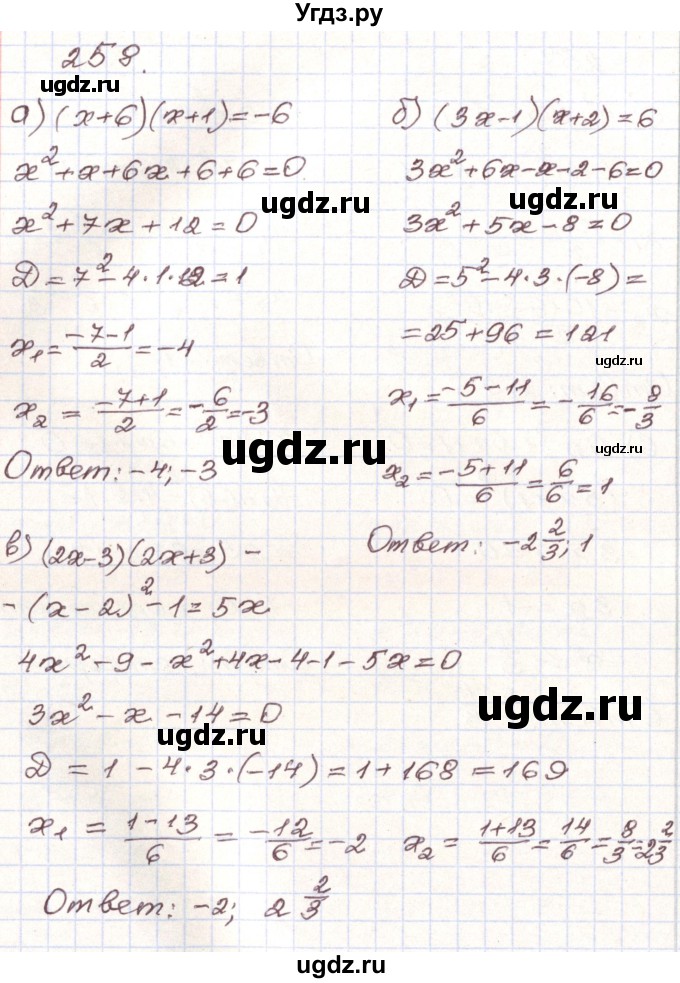 Угдз.ру
258.
ugdz.ru
а) (x+6)(x+1)=-6
x²+x+6x+6+6=0
x²+7x+12=0
D=7²-4·1·12=1
x₁=(-7-1)/2=-4
x₂=(-7+1)/2=-6/2=-3
Ответ: -4; -3
ugdz.ru
б) (3x-1)(x+2)=6
3x²+6x-x-2-6=0
ugdz.ru
3x²+5x-8=0
D=5²-4·3·(-8)=
=25+96=121
ugdz.ru
x₁=(-5-11)/6=-16/6=-8/3
ugdz.ru
ugdz.ru
x₂=(-5+11)/6=6/6=1
Ответ: -2 2/3; 1
в) (2x-3)(2x+3)-
-(x-2)²-1=5x
4x²-9-x²+4x-4-1-5x=0
3x²-x-14=0
ugdz.ru
ugdz.ru
D=1-4·3·(-14)=1+168=169
x₁=(1-13)/6=-12/6=-2 x₂=(1+13)/6=14/6=8/3=2 2/3
ugdz.ru
Ответ: -2; 2 2/3
ugdz.ru